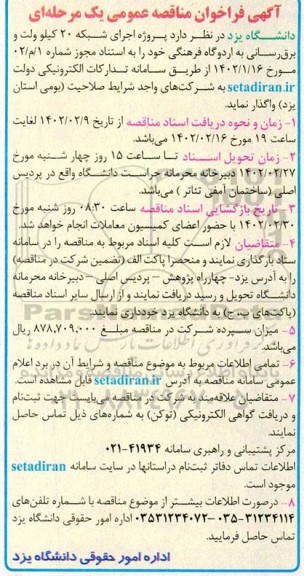 آگهی فراخوان مناقصه عمومی یک مرحله‌ای
دانشگاه یزد در نظر دارد پروژه اجرای شبکه ۲۰ کیلو ولت و
برق‌رسانی به اردوگاه فرهنگی خود را به استناد مجوز شماره ۱/م/۰۲
مورخ ۱۴۰۲/۱/۱۶ از طریق سامانه تدارکات الکترونیکی دولت
setadiran.ir به شرکت‌های واجد شرایط صلاحیت (بومی استان
یزد) واگذار نماید.
۱- زمان و نحوه دریافت اسناد مناقصه از تاریخ ۱۴۰۲/۰۲/۹ لغایت
ساعت ۱۹ مورخ ۱۴۰۲/۰۲/۱۶ می‌باشد.
۲- زمان تحویل اسناد تا ساعت ۱۵ روز چهار شنبه مورخ
۱۴۰۲/۰۲/۲۷ دبیرخانه محرمانه حراست دانشگاه واقع در پردیس
اصلی (ساختمان آمفی تئاتر ) می‌باشد.
۳- تاریخ بازگشایی اسناد مناقصه ساعت ۰۸:۳۰ روز شنبه مورخ
۱۴۰۲/۰۲/۳۰ با حضور اعضای کمیسیون معاملات انجام خواهد شد.
۴- متقاضیان لازم است کلیه اسناد مربوط به مناقصه را در سامانه
ستاد بارگذاری نمایند و منحصرا پاکت الف (تضمین شرکت در مناقصه)
را به آدرس یزد- چهارراه پژوهش – پردیس اصلی – دبیرخانه محرمانه
دانشگاه تحویل و رسید دریافت نمایند و از ارسال سایر اسناد مناقصه
(پاکت‌های ب-ج) به دانشگاه یزد خودداری نمایند.
۵- میزان سپرده شرکت در مناقصه مبلغ ۸۷۸,۷۰۹,۰۰۰ ریال
می‌باشد.
۶- تمامی اطلاعات مربوط به موضوع مناقصه و شرایط آن در برد اعلام
عمومی سامانه مناقصه به آدرس setadiran.ir قابل مشاهده است.
۷- متقاضیان علاقه‌مند به شرکت در مناقصه می‌بایست جهت ثبت‌نام
و دریافت گواهی الکترونیکی (توکن) به شماره‌های ذیل تماس حاصل
نمایند.
مرکز پشتیبانی و راهبری سامانه ۴۱۹۳۴-۰۲۱
اطلاعات تماس دفاتر ثبت‌نام دراستانها در سایت سامانه setadiran
موجود است.
۸- درصورت اطلاعات بیشتر از موضوع مناقصه با شماره تلفن‌های
۰۳۵-۳۱۲۳۴۱۱۴ -۰۳۵۳۱۲۳۴۰۷۲ اداره امور حقوقی دانشگاه یزد
تماس حاصل فرمایید.
اداره امور حقوقی دانشگاه یزد